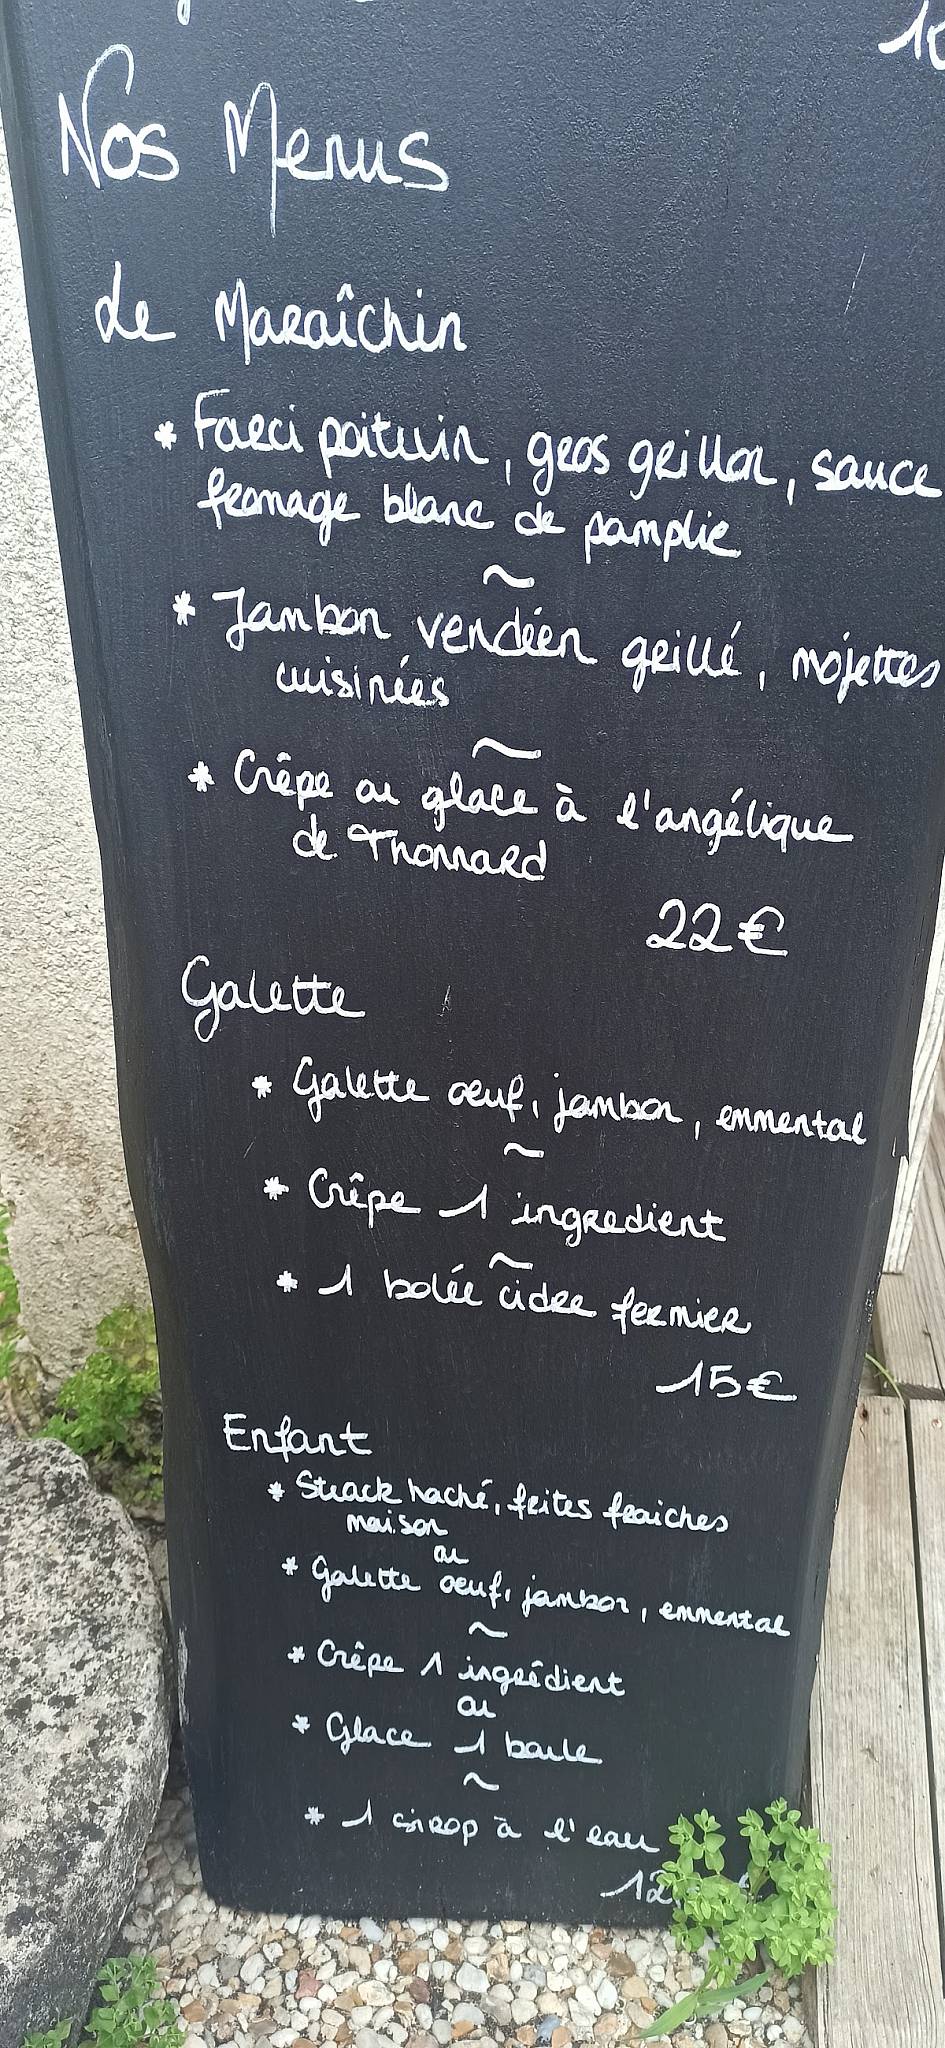 Nos Menus
Le Maraîchin
* Farci poitevin, gros grillon, sauce
fromage blanc de pamplie
~
* Jambon vendéen grillé, mojettes
cuisinées
~
* Crêpe ou glace à l'angélique
de Thonnard
22€
Galette
* Galette oeuf, jambon, emmental
~
* Crêpe 1 ingredient
~
* 1 bolée cidre fermier
15€
Enfant
* Steack haché, frites fraiches
maison
ou
* Galette oeuf, jambon, emmental
~
* Crêpe 1 ingrédient
ou
* Glace 1 boule
~
* 1 sirop à l'eau
12